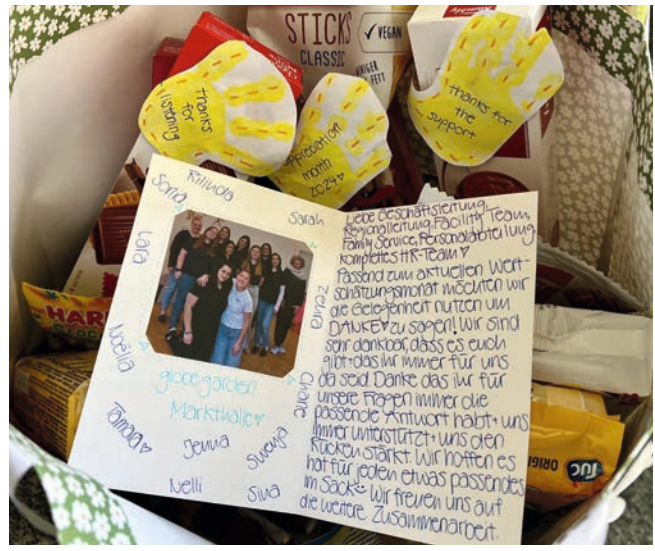 STICKS
CLASSIC
✓ VEGAN
NIGER
FETT
thanks
for
listening
appreciation
month
2024♥
thanks for
the
support
Rilinda
Sonja
Sarah
Lara
Zehra
Noëlia
globegarden
Markthalle♥
Tamara♥
Jenna
Swenja
Nelli
Siva
Liebe Geschäftsleitung,
Regionalleitung, Facility Team,
Family Service, Personalabteilung
komplettes HR-Team♥
Passend zum aktuellen Wert-
schätzungsmonat möchten wir
die Gelegenheit nutzen um
DANKE♥ zu sagen! Wir sind
sehr dankbar, dass es euch
gibt+das ihr immer für uns
da seid. Danke das ihr für
unsere Fragen immer die
passende Antwort habt+uns
immer unterstützt+uns den
Rücken stärkt. Wir hoffen es
hat für jeden etwas passendes
im Sack☺ Wir freuen uns auf
die weitere Zusammenarbeit.
HAR
TUC
ORIGI